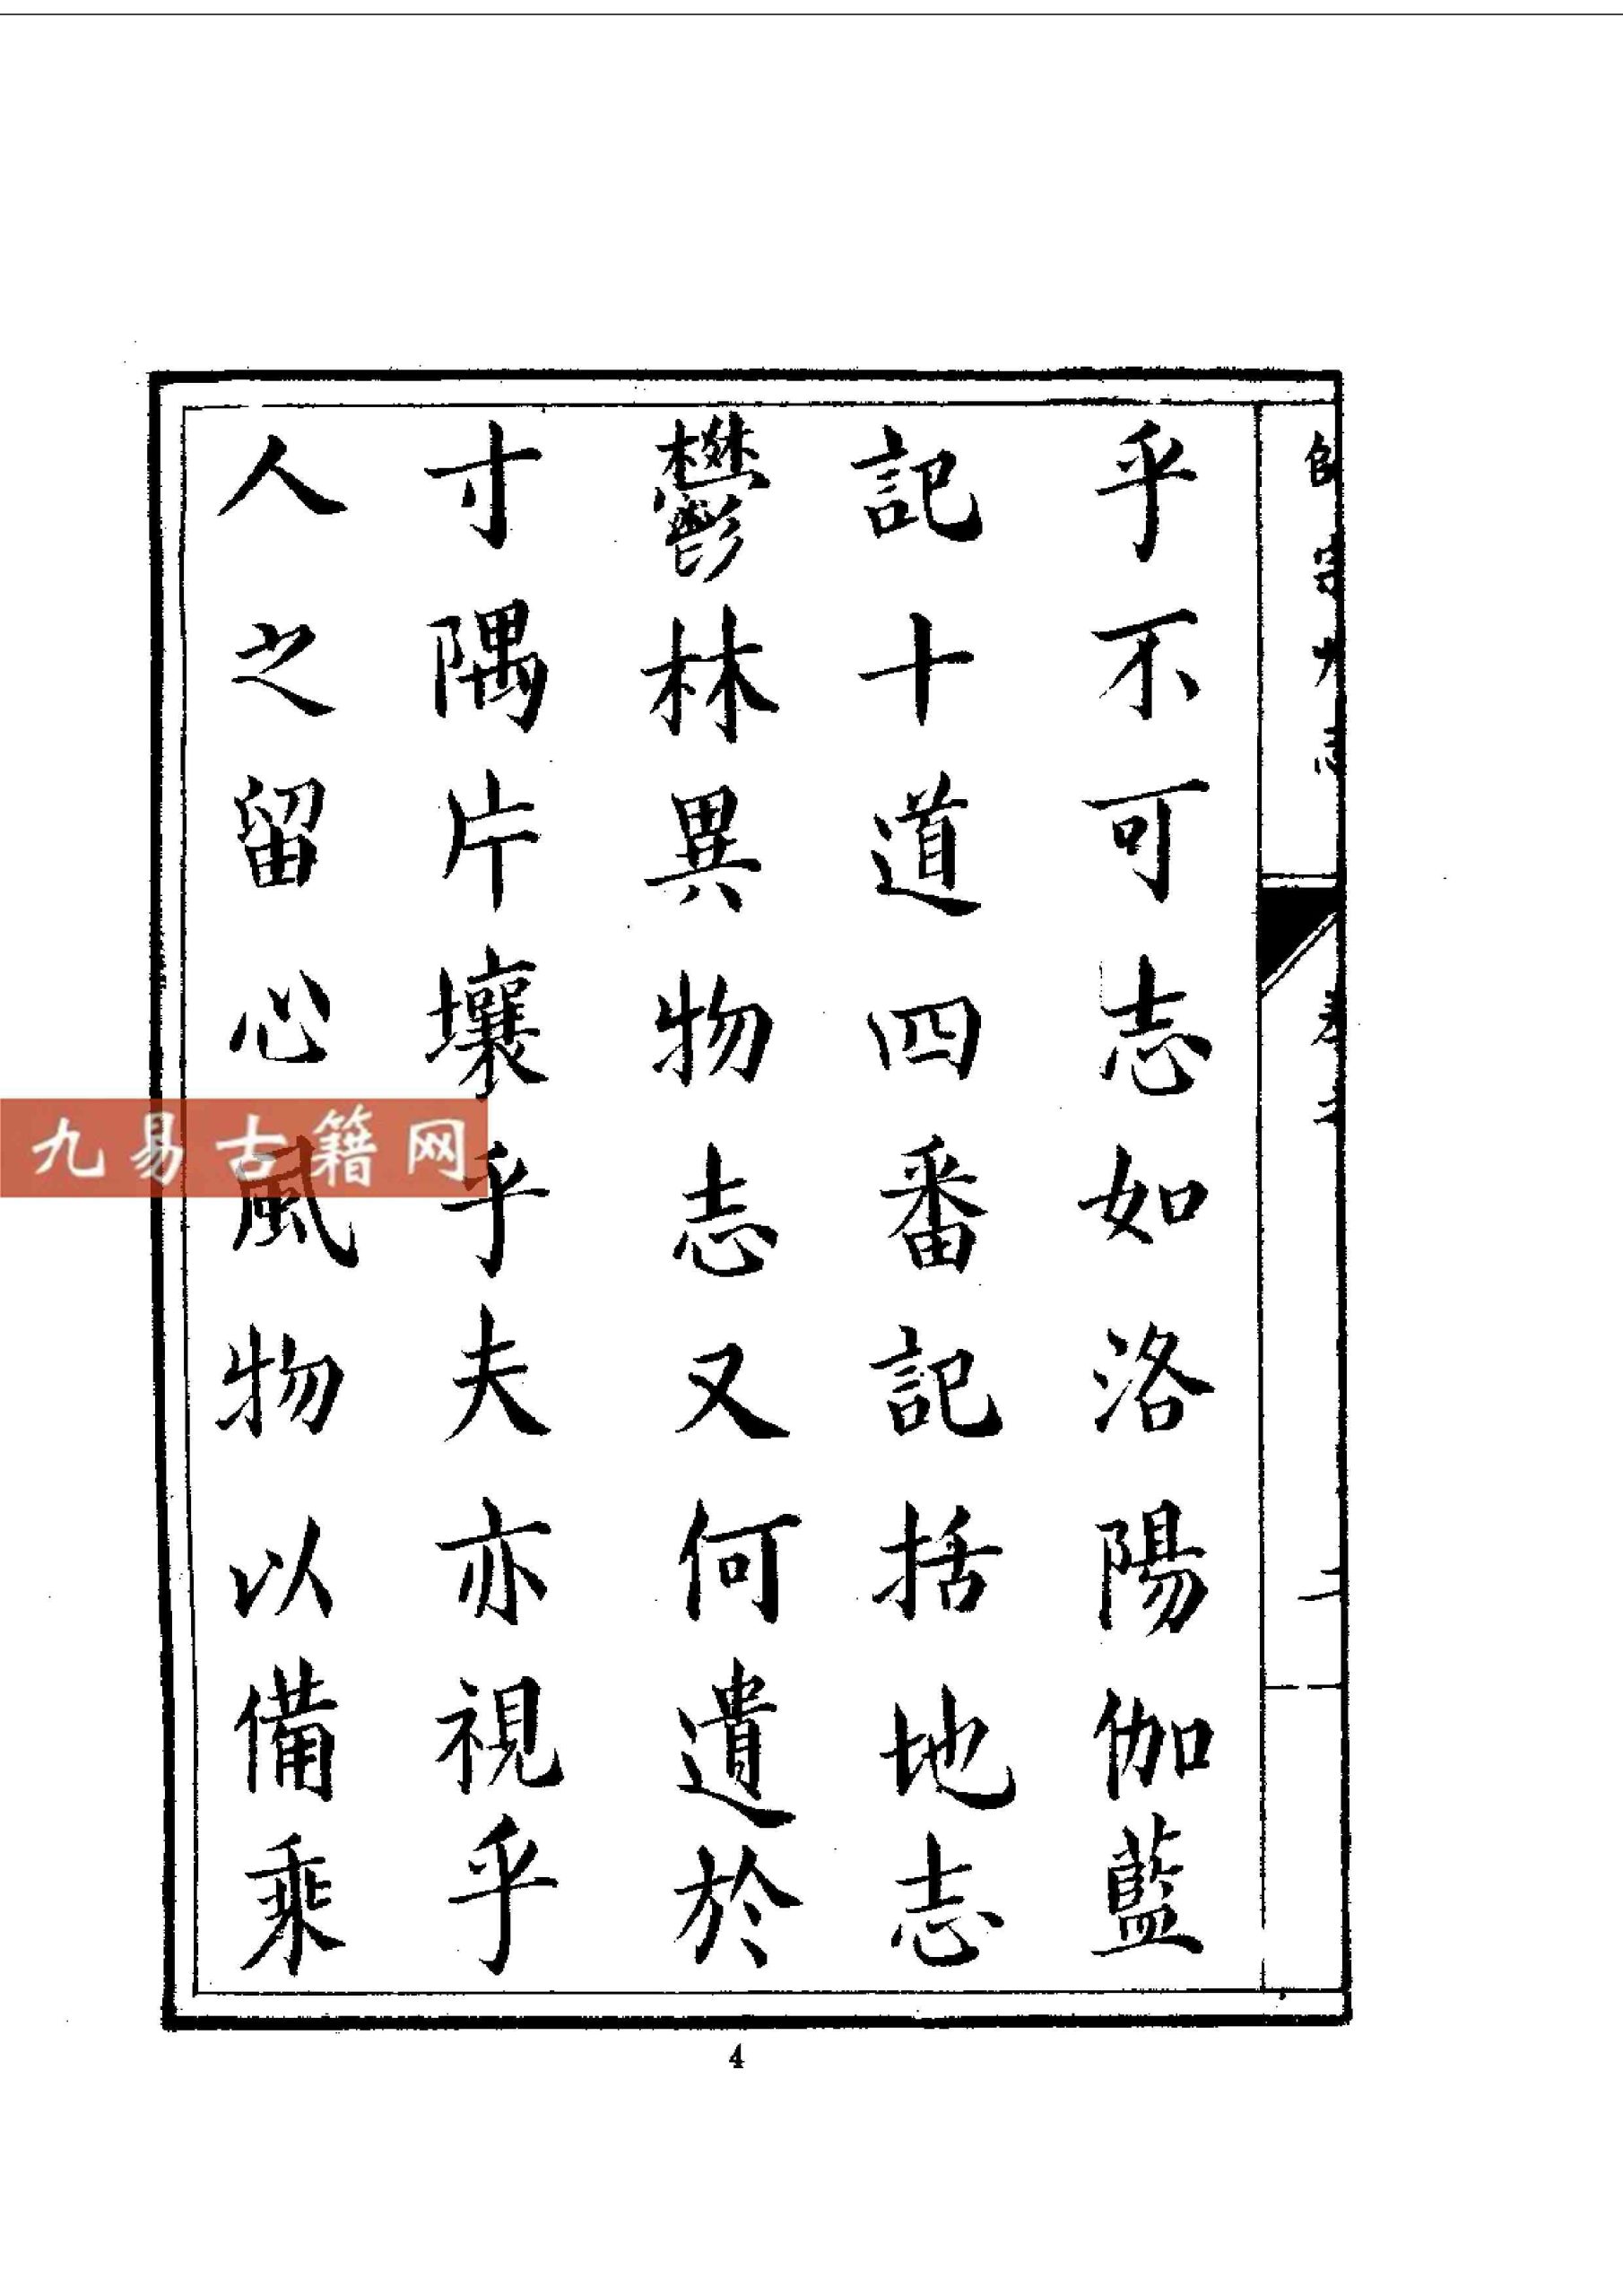 乎不可志如洛陽伽藍
記十道四番記括地志
鬱林異物志又何遺於
寸隅片壤乎夫亦視乎
人之留心風物以備乘
九易古籍网
4